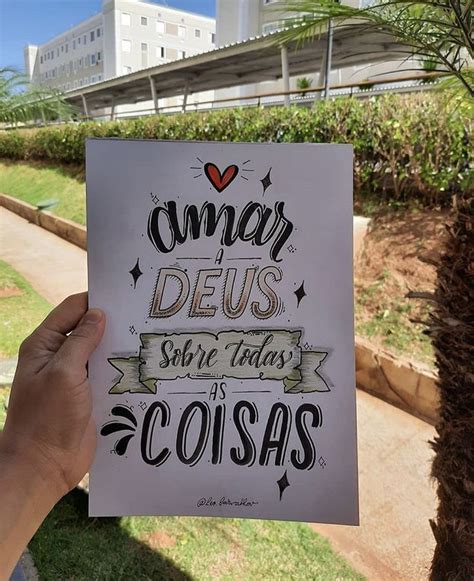 amar
A
DEUS
Sobre todas
AS
COISAS